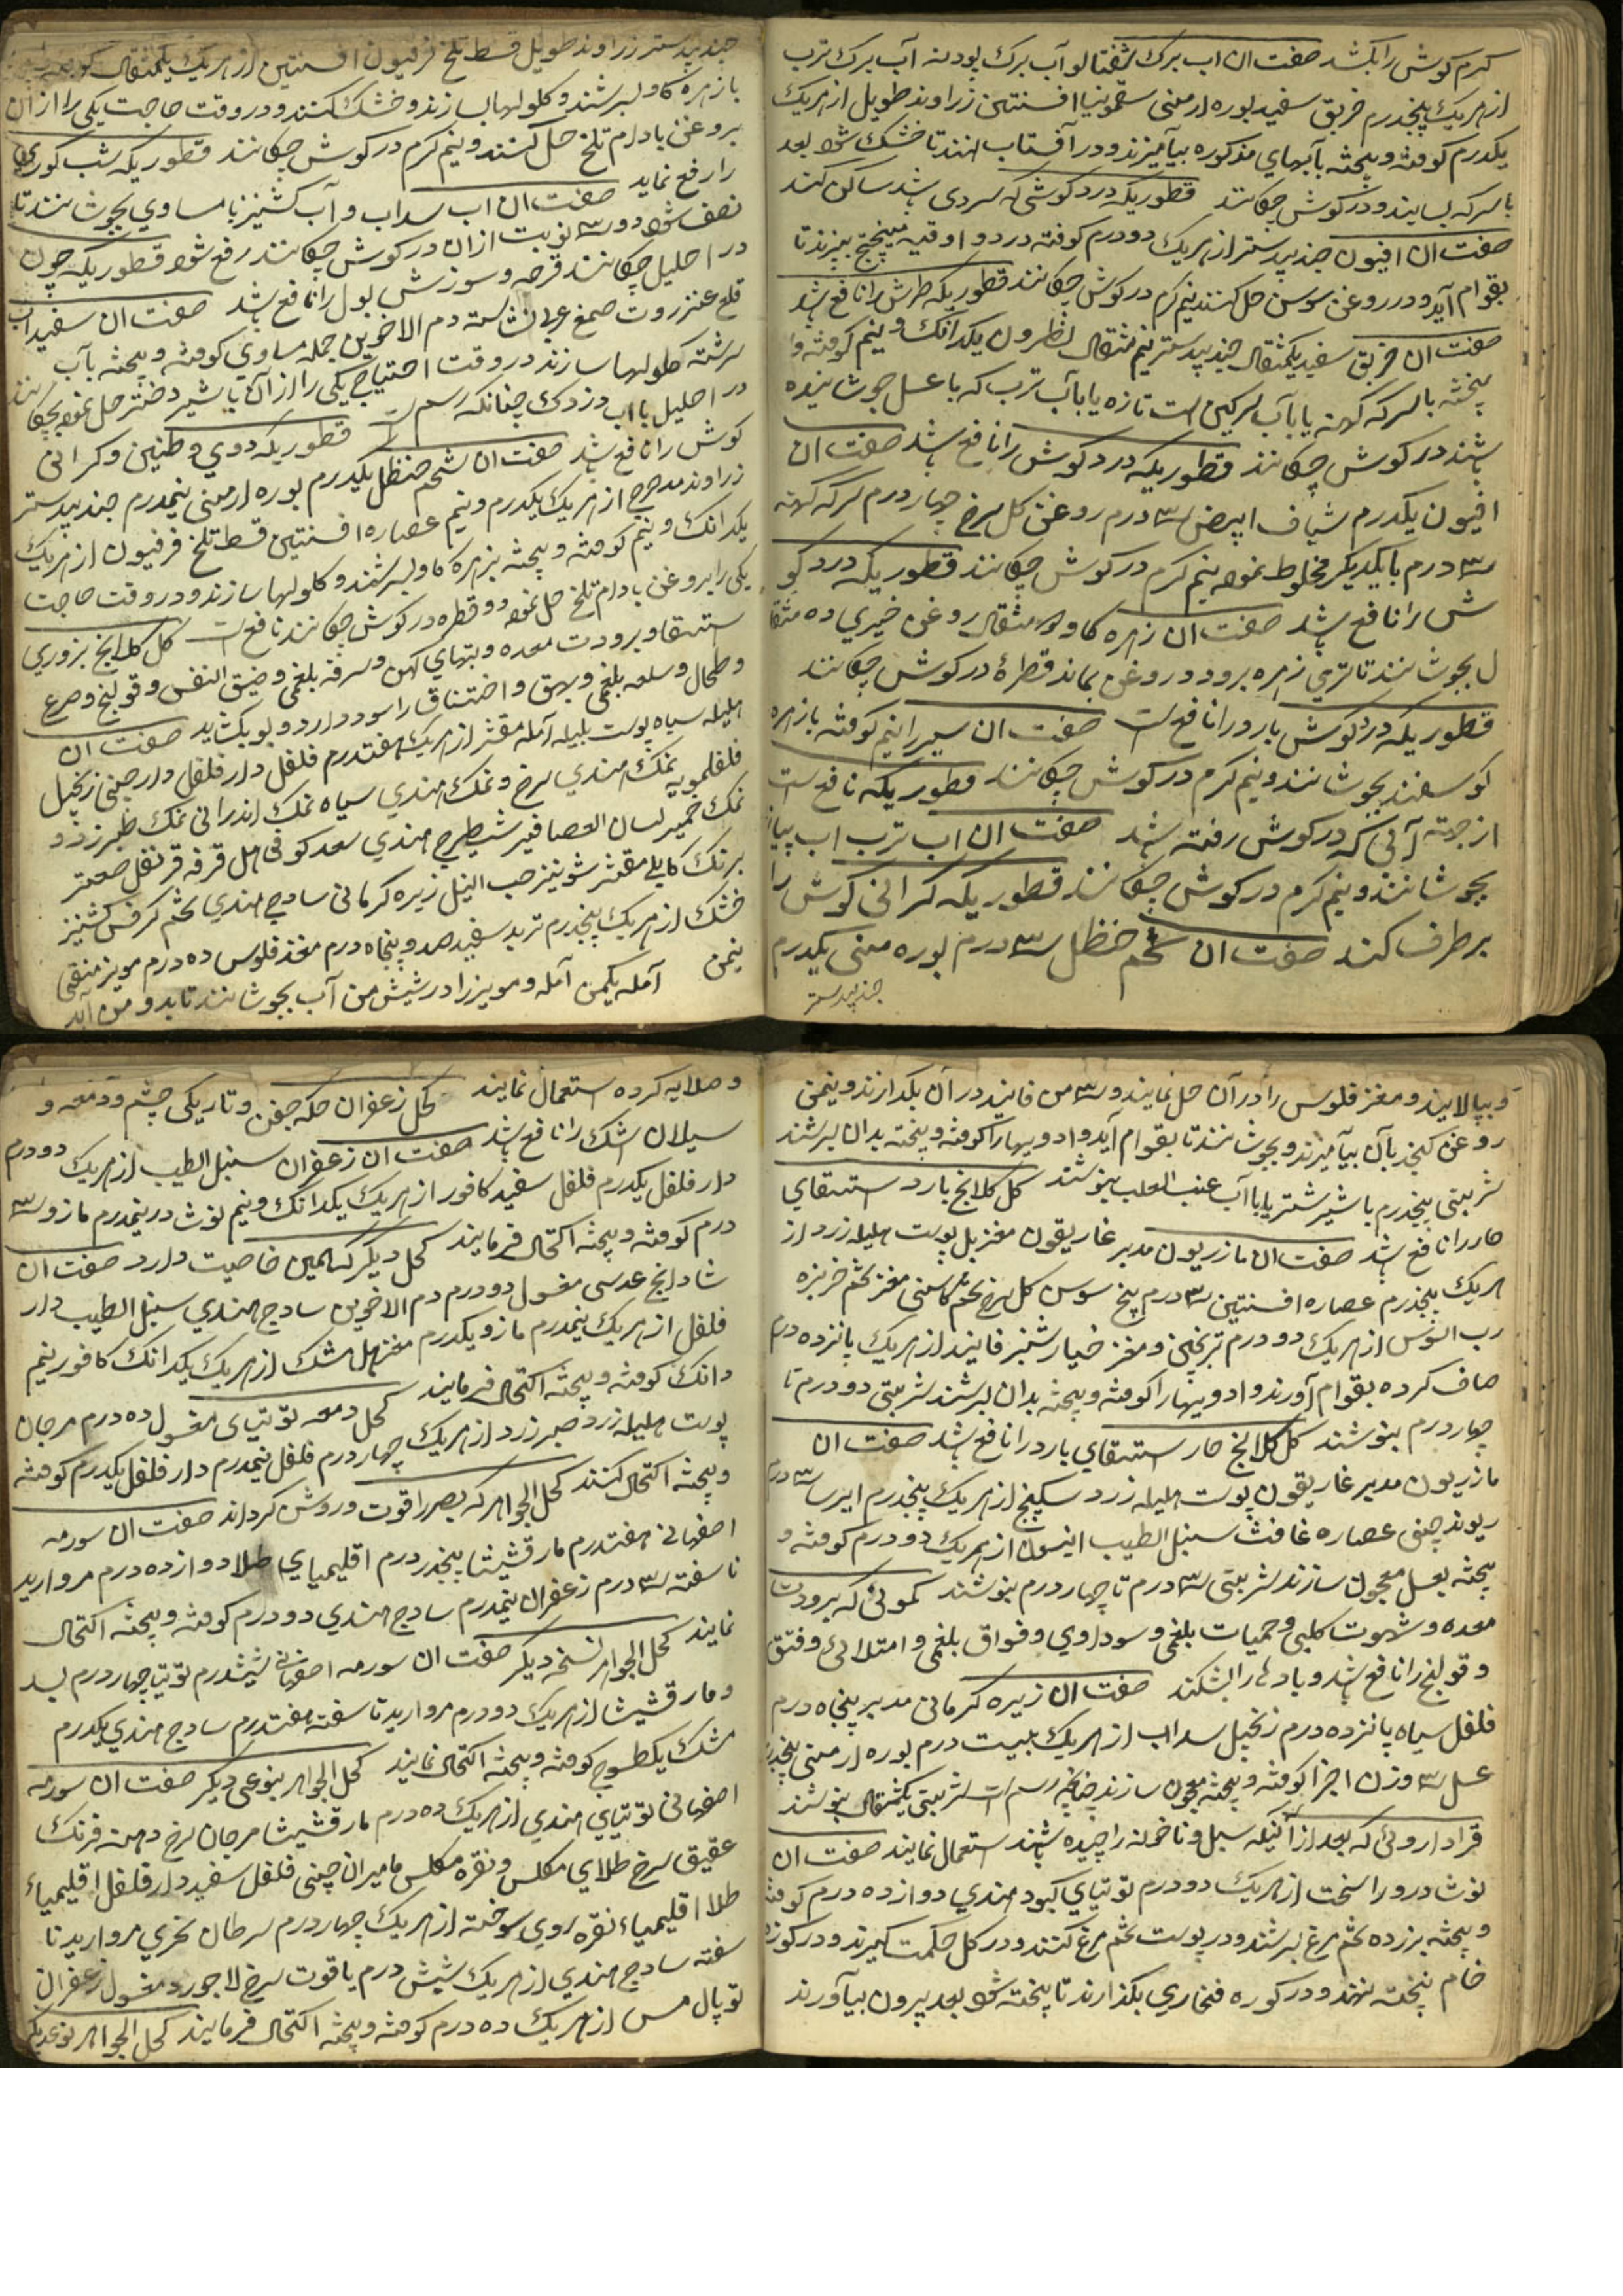 کرم کوش را بکشد صفت ان اب برک شفتالو آب برک پودنه آب برک ترب
از هریک پنجدرم خربق سفید بوره ارمنی سقمونیا افسنتین زراوند طویل از هریک
یکدرم کوفته و پیخته بآبهای مذکوره بیآمیزند و در آفتاب نهند تا خشک شود بعد
با سرکه بسایند و در کوش چکانند قطوریکه درد کوشی که سردی باشد ساکن کند
صفت ان افیون جندبیدستر از هریک دو درم کوفته در دو اوقیه میپختج بپزند تا
بقوام آید و در روغن سوسن حل کنند نیم کرم در کوش چکانند قطوریکه طرش را نافع باشد
صفت ان خربق سفید یکمثقال جندبیدستر نیم مثقال نطرون یکدانک و نیم کوفته و
پیخته با سرکه کهنه یا بآب سرکین است تازه یا بآب ترب که با عسل جوشانیده
باشند در کوش چکانند قطوریکه درد کوش را نافع باشد صفت ان
افیون یکدرم شیاف ابیض سه درم روغن کل سرخ چهار درم سرکه کهنه
سه درم با یکدیکر مخلوط نموده نیم کرم در کوش چکانند قطوریکه درد کو
ش را نافع باشد صفت ان زهره کاو مثقال روغن خیری ده مثقا
ل بجوشانند تا تری زهره برود و روغن بماند قطرهٔ در کوش چکانند
قطوریکه درد کوش بارد را نافع است صفت ان سیر را نیم کوفته با زهره
کوسفند بجوشانند و نیم کرم در کوش چکانند قطوریکه نافع است
از جهته آبی که در کوش رفته باشد صفت ان اب ترب اب پیاز
بجوشانند و نیم کرم در کوش چکانند قطوریکه کرانی کوش را
برطرف کند صفت ان شحم حنظل سه درم بوره ارمنی یکدرم
جندبیدستر
جندبیدستر زراوند طویل قسط تلخ فرفیون افسنتین از هریک یکمثقال کوفته
با زهره کاو بسرشند و کلولها بسازند و خشک کنند و در وقت حاجت یکی را از ان
بروغن بادام تلخ حل کنند و نیم کرم در کوش چکانند قطوریکه شب کوری
را رفع نماید صفت ان اب سداب و آب کشنیز با مساوی بجوشانند تا
نصف شود دو سه نوبت از ان در کوش چکانند رفع شود قطوریکه چون
در احلیل چکانند قرحه و سوزش بول را نافع باشد صفت ان سفیداب
قلع عنزروت صمغ عربی نشاسته دم الاخوین جمله مساوی کوفته و پیخته بآب
سرشته کلولها سازند در وقت احتیاج یکی را از آن با شیر دختر حل نموده بچکانند
در احلیل با اب دزدک چنانکه رسم است قطوریکه دوی و طنین و کرانی
کوش را نافع باشد صفت ان شحم حنظل یکدرم بوره ارمنی نیمدرم جندبیدستر
زراوند مدحرج از هریک یکدرم و نیم عصاره افسنتین قسط تلخ فرفیون از هریک
یکدانک و نیم کوفته و پیخته بزهره کاو بسرشند و کلولها سازند و در وقت حاجت
یکی را بروغن بادام تلخ حل نموده دو قطره در کوش چکانند نافع است کل کلانج بزوری
استسقا و برودت معده و تبهای کهن و سرفه بلغمی و ضیق النفس و قولنج و صرع
و طحال و سلعه بلغمی و بهق و اختناق را سود دارد و بول بکشاید صفت ان
هلیله سیاه پوست بلیله آمله مقشر از هریک هفتدرم فلفل دارفلفل دارچینی زنجبیل
فلفلمویه نمک هندی سرخ و نمک هندی سیاه نمک اندرانی نمک طبرزد و
نمک خمیر لسان العصافیر شیطرج هندی سعد کوفی هل قرفه قرنفل صعتر
برنک کابلی مقشر شونیز حب النیل زیره کرمانی سادج هندی تخم کرفس کشنیز
خشک از هریک پنجدرم تربد سفید صد و پنجاه درم مغز فلوس ده درم مویز منقی
نیمن آمله یکمن آمله و مویز را در شیش من آب بجوشانند تا بدو من آید
و بپالایند و مغز فلوس را در آن حل نمایند و سه من فانیذ در آن بکدازند و نیمن
روغن کنجد بآن بیآمیزند و بجوشانند تا بقوام آید و ادویها را کوفته و پیخته بدان بسرشند
شربتی پنجدرم با شیر شتر یا با آب عنب الثعلب بنوشند کل کلانج بارد استسقای
حار را نافع باشد صفت ان مازریون مدبر غاریقون مغربل پوست هلیله زرد از
هریک پنجدرم عصاره افسنتین سه درم پنج سوسن کل سرخ تخم کاسنی مغز تخم خربزه
رب السوس از هریک دو درم ترنجبین و مغز خیارشنبر فانیذ از هریک پانزده درم
صاف کرده بقوام آورند و ادویها را کوفته و پیخته بدان بسرشند شربتی دو درم تا
چهار درم بنوشند کل کلانج حار استسقای بارد را نافع باشد صفت ان
مازریون مدبر غاریقون پوست هلیله زرد سکبینج از هریک پنجدرم ایرسا سه درم
ریوند چینی عصاره غافث سنبل الطیب انیسون از هریک دو درم کوفته و
پیخته بعسل معجون سازند شربتی سه درم تا چهار درم بنوشند کمونی که برودت
معده و شهوت کلبی و حمیات بلغمی و سوداوی و فواق بلغمی و امتلائی و فتق
و قولنج را نافع باشد و بادها را بشکند صفت ان زیره کرمانی مدبر پنجاه درم
فلفل سیاه پانزده درم زنجبیل سداب از هریک بیست درم بوره ارمنی پنجدرم
عسل سه وزن اجزا کوفته و پیخته معجون سازند چنانچه رسم است شربتی یکمثقال بنوشند
داروئی که بعد از آنکه سبل و ناخونه را چیده باشند استعمال نمایند صفت ان
نوشادر و راسخت از هریک دو درم توتیای کبود هندی دوازده درم کوفته
و پیخته بزرده تخم مرغ بسرشند و در پوست تخم مرغ کنند و در کل حکمت کیرند و در کوزه
خام پخته نهند و در کوره فخاری بکذارند تا پخته شود بعد بیرون بیآورند
و صلایه کرده استعمال نمایند کحل زعفران حکه جفن و تاریکی چشم و دمعه و
سیلان اشک را نافع باشد صفت ان زعفران سنبل الطیب از هریک دو درم
دارفلفل یکدرم فلفل سفید کافور از هریک یکدانک و نیم نوشادر نیمدرم مازو سه
درم کوفته و پیخته اکتحال فرمایند کحل دیکر که همین خاصیت دارد صفت ان
شادنج عدسی مغسول دو درم دم الاخوین سادج هندی سنبل الطیب دار
فلفل از هریک نیمدرم مازو یکدرم مغز هل مشک از هریک یکدانک کافور نیم
دانک کوفته و پیخته اکتحال فرمایند کحل دمعه توتیای مغسول ده درم مرجان
پوست هلیله زرد صبر زرد از هریک چهار درم فلفل نیمدرم دارفلفل یکدرم کوفته
و پیخته اکتحال کنند کحل الجواهر که بصر را قوت و روشن کرداند صفت ان سورمه
اصفهانی هفتدرم مارقشیشا پنجدرم اقلیمیای طلا دوازده درم مروارید
ناسفته سه درم زعفران نیمدرم سادج هندی دو درم کوفته و پیخته اکتحال
نمایند کحل الجواهر نسخه دیکر صفت ان سورمه اصفهانی شیشدرم توتیا چهاردرم بسد
و مارقشیشا از هریک دو درم مروارید ناسفته هفتدرم سادج هندی یکدرم
مشک یکطسوج کوفته و پیخته اکتحال نمایند کحل الجواهر بنوعی دیکر صفت ان سورمه
اصفهانی توتیای هندی از هریک ده درم مارقشیشا مرجان سرخ دهنه فرنک
عقیق سرخ طلای مکلس و نقره مکلس مامیران چینی فلفل سفید دارفلفل اقلیمیاء
طلا اقلیمیاء نقره روی سوخته از هریک چهار درم سرطان بحری مروارید نا
سفته سادج هندی از هریک شیش درم یاقوت سرخ لاجورد مغسول زعفران
توپال مس از هریک ده درم کوفته و پیخته اکتحال فرمایند کحل الجواهر نوعدیکر